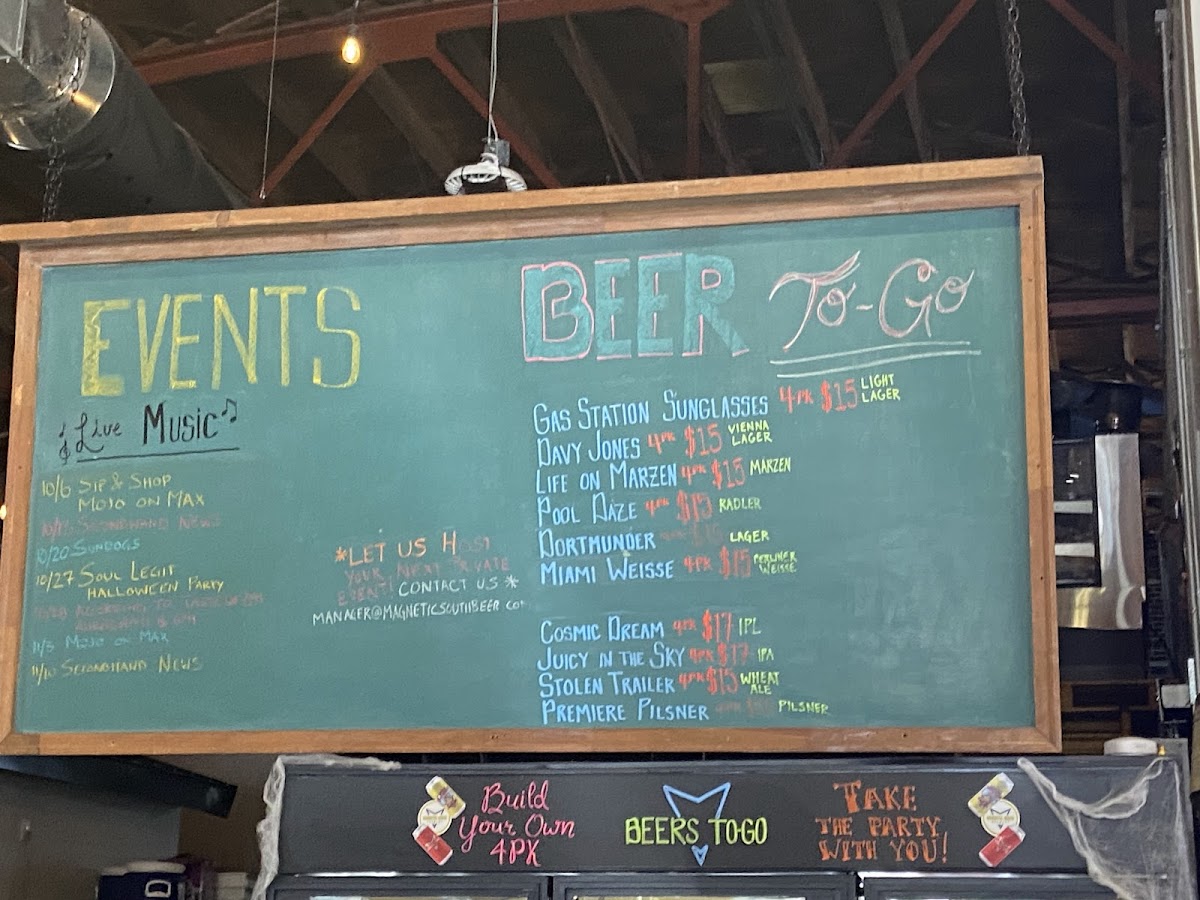 EVENTS
Live Music
10/6 SIP & SHOP
MOJO ON MAX
SECONDHAND NEWS
10/20 SUNDOGS
10/27 SOUL LEGIT
HALLOWEEN PARTY
ACCORDING TO
11/3 MOJO ON MAX
11/10 SECONDHAND NEWS
*LET US HOST
YOUR NEXT PRIVATE
EVENT! CONTACT US *
MANAGER@MAGNETICSOUTHBEER.COM
BEER To-Go
GAS STATION SUNGLASSES 4PK $15 LIGHT LAGER
DAVY JONES 4PK $15 VIENNA LAGER
LIFE ON MARZEN 4PK $15 MARZEN
POOL DAZE 4PK $15 RADLER
DORTMUNDER LAGER
MIAMI WEISSE 4PK $15 BERLINER WEISSE
COSMIC DREAM 4PK $17 IPL
JUICY IN THE SKY 4PK $17 IPA
STOLEN TRAILER 4PK $15 WHEAT ALE
PREMIERE PILSNER PILSNER
Build
Your Own
4PK
BEERS TO-GO
TAKE
THE PARTY
WITH YOU!